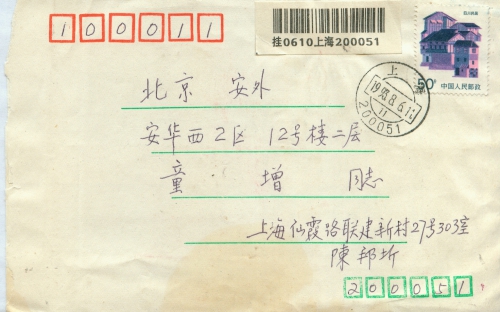 100011
挂0610上海200051
四川民居
50分
中国人民邮政
上海
1993.8.6.11
200051
北京 安外
安华西2区 12号楼二层
童 增 同志
上海仙霞路联建新村27号303室
陳邦圻
200051